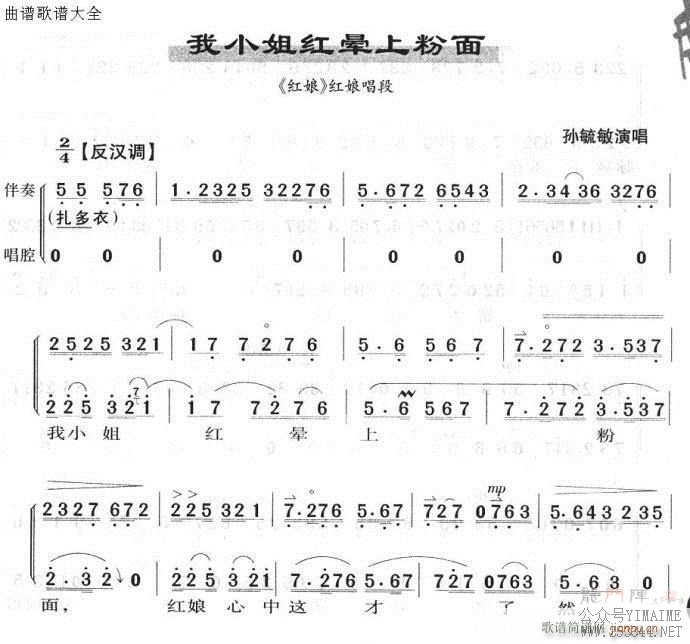 曲谱歌谱大全
我小姐红晕上粉面
《红娘》红娘唱段
2/4【反汉调】
孙毓敏演唱
伴奏 5 5 576 | 1.2325 32276 | 5.672 6543 | 2.3436 3276 |
(扎多衣)
唱腔 0 0 | 0 0 | 0 0 | 0 0 |
2525 321 | 17 7276 | 5.6 567 | 7.272 3.537 |
225 321 | 17 7276 | 5.6 567 | 7.272 3.537 |
我小姐 红晕 上 粉
2327 672 | 225 321 | 7.276 5.67 | 727 0763 | 5.643 235 |
mp
2.32 0 | 225 321 | 7.276 5.67 | 727 0763 | 5.63
面, 红娘心中这 才 了 然
公众号YIMAIME
歌谱简谱网